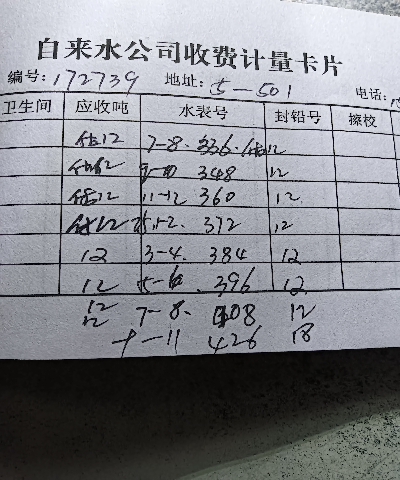 自来水公司收费计量卡片
编号: 172739 地址: 5-501 电话:
卫生间 应收吨 水表号 封铅号 擦校
估12 7-8. 336. 估12
估12 9-10 348 12
估12 11-12 360 12
估12 25.1-2. 372 12
12 3-4. 384 12
12 5-6 396 12
12 7-8. 408 12
12 十-11 426 18